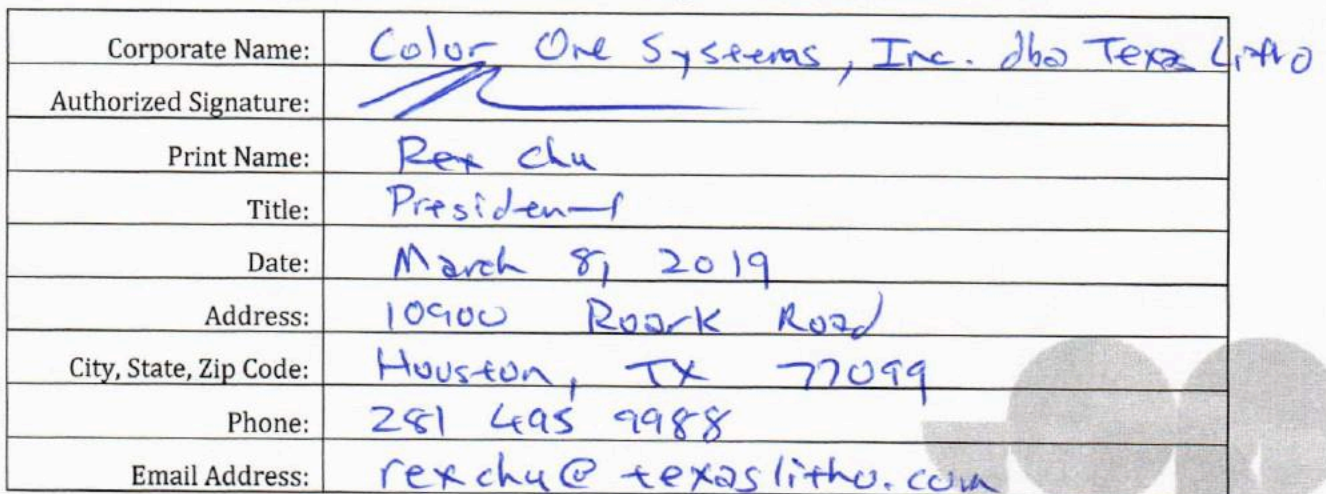 Corporate Name: Color One Systems, Inc. dba Texas Litho
Authorized Signature:
Print Name: Rex Chu
Title: President
Date: March 8, 2019
Address: 10900 Roark Road
City, State, Zip Code: Houston, TX 77099
Phone: 281 495 9988
Email Address: rexchu@texaslitho.com